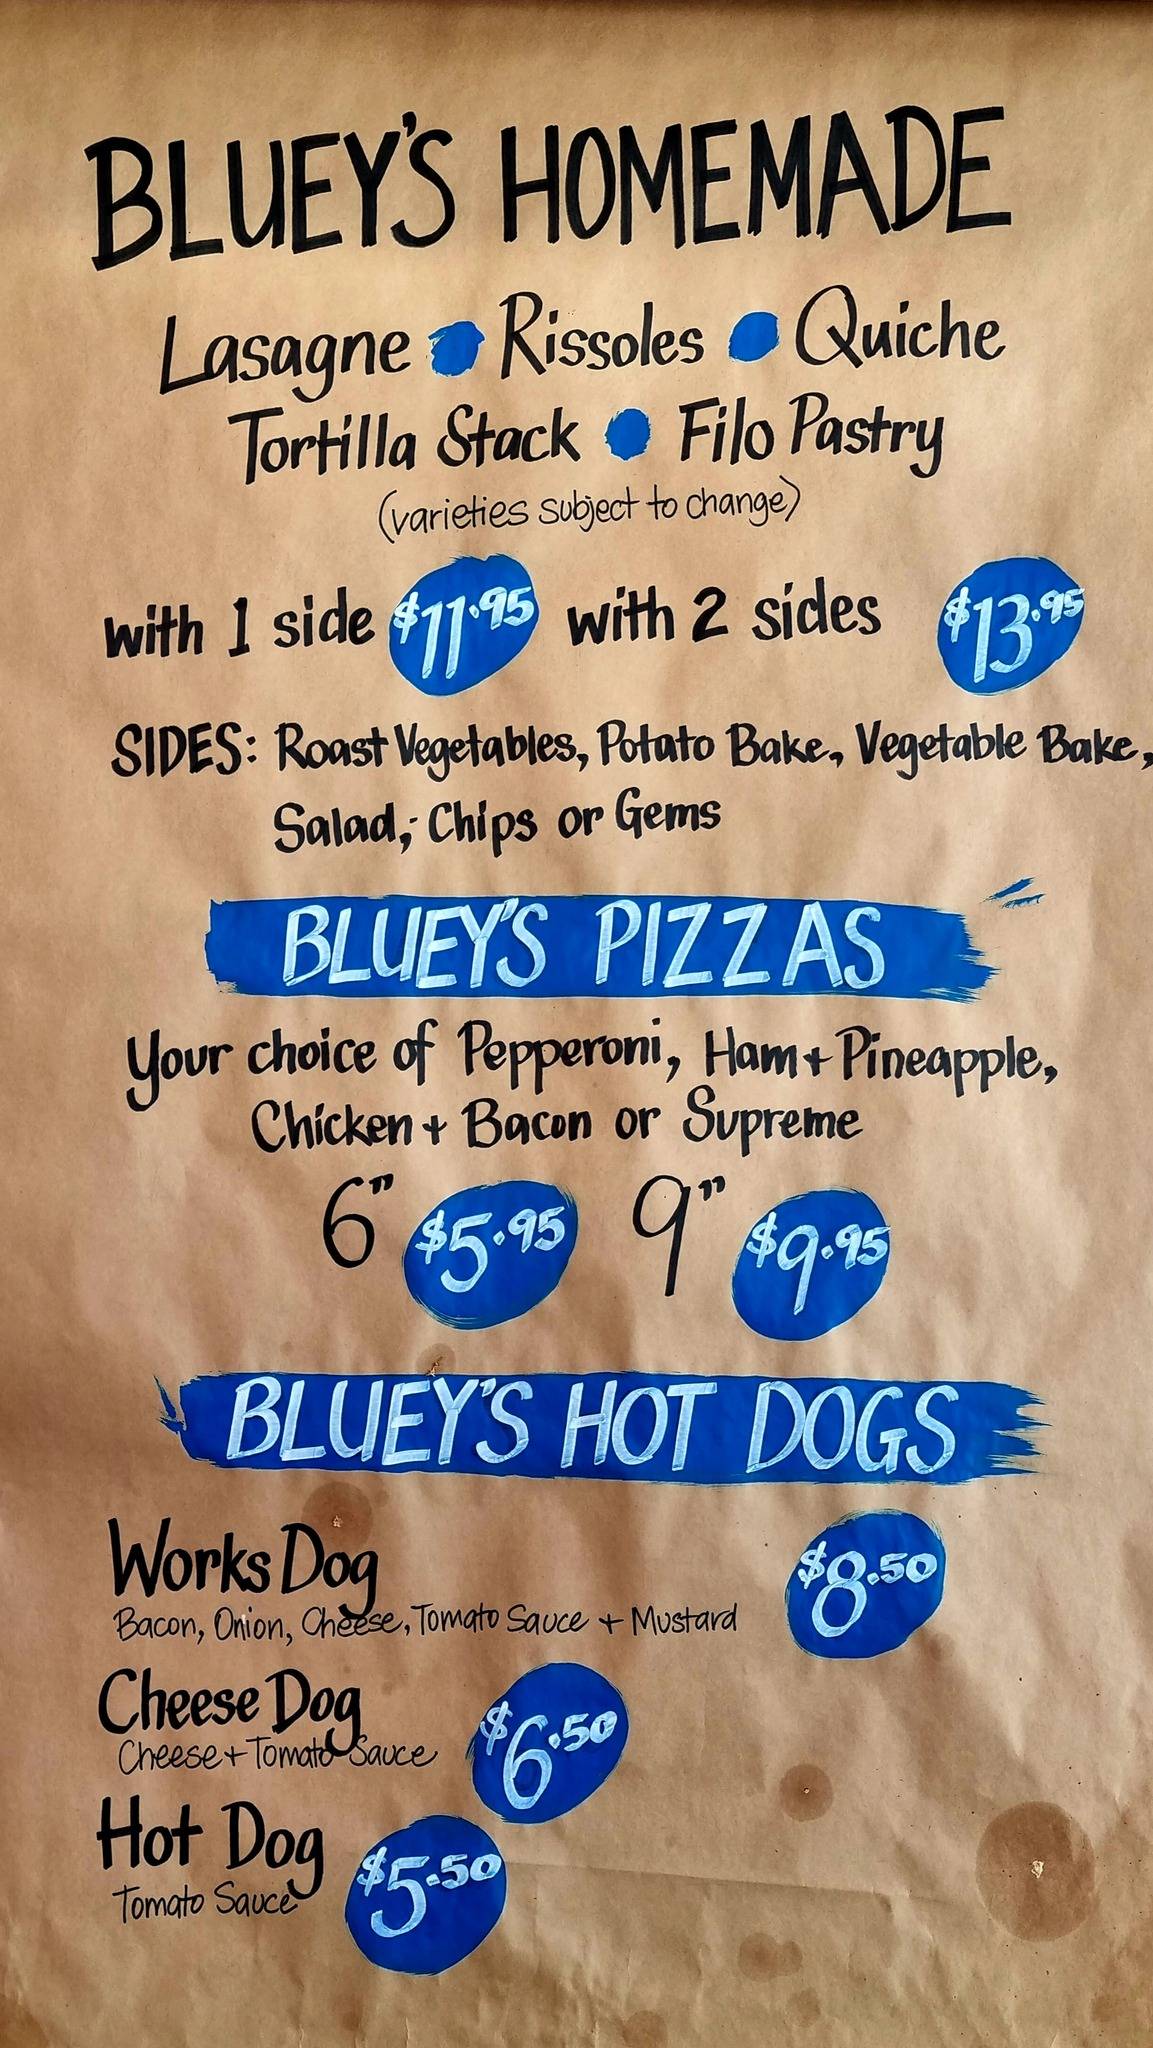 BLUEY'S HOMEMADE
Lasagne • Rissoles • Quiche
Tortilla Stack • Filo Pastry
(varieties subject to change)
with 1 side $11.95 with 2 sides $13.95
SIDES: Roast Vegetables, Potato Bake, Vegetable Bake,
Salad, Chips or Gems
BLUEY'S PIZZAS
Your choice of Pepperoni, Ham + Pineapple,
Chicken + Bacon or Supreme
6" $5.95 9" $9.95
BLUEY'S HOT DOGS
Works Dog $8.50
Bacon, Onion, Cheese, Tomato Sauce + Mustard
Cheese Dog $6.50
Cheese + Tomato Sauce
Hot Dog $5.50
Tomato Sauce